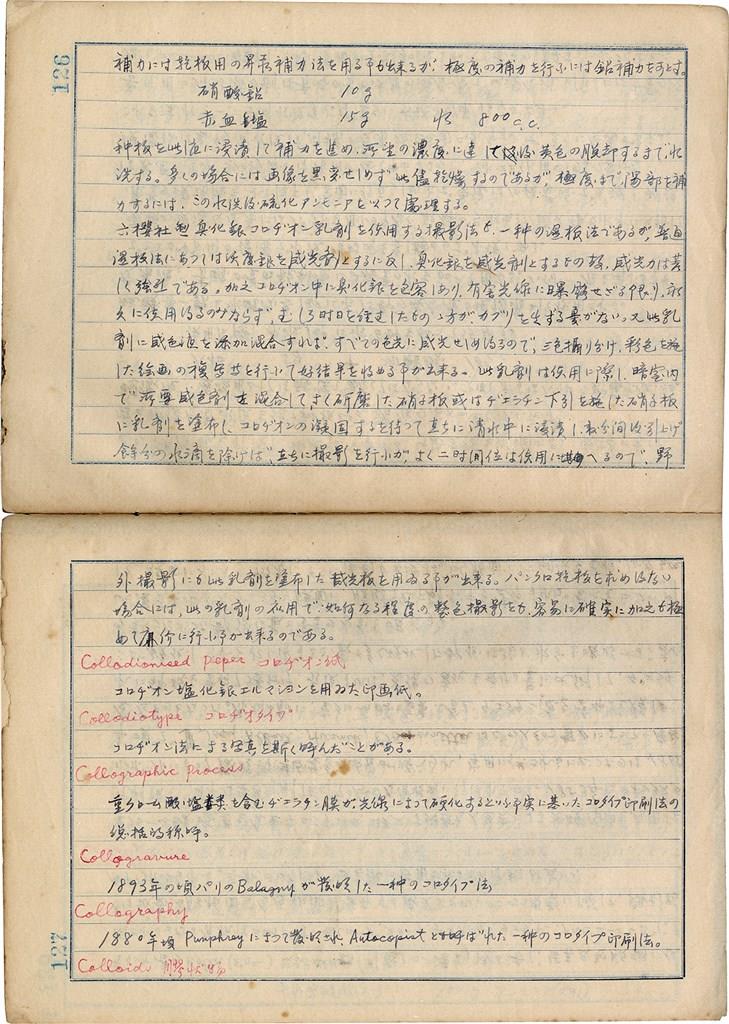 126
補力には乾板用の昇汞補力法を用る事も出来るが、極度の補力を行ふには鉛補力をすとす。
硝酸鉛 10g
赤血塩 15g 水 800c.c.
種板を此液に浸漬して補力を進め、所望の濃度に達して後、黄色の脱却するまで水
洗する。多くの場合には画像を黒変せしめず此儘乾燥するのであるが、極度まで陽部を補
力するには、この水洗後硫化アンモニアを以つて処理する。
六櫻社型臭化銀コロヂオン乳剤を使用する撮影法も、一種の湿板法であるが、普通
湿板法にあつては沃度銀を感光剤とするに反し、臭化銀を感光剤とするもの故、感光力は甚
しく強烈である。加之コロヂオン中に臭化銀を包容しあり、有害光線に曝露せざる限り、永
久に使用得るのみならず、むしろ時日を経過したものゝ方がカブリを生ずる憂がない。又此乳
剤に感色液を添加混合すれば、すべての色光に感光せしめ得るので、三色撮り分け、彩色を施
した絵画の複写等を行いて好結果を収める事が出来る。此乳剤は使用に際し、暗室内
で所要感色剤を混合して、よく研磨した硝子板或はヂェラチン下引を施した硝子板
に乳剤を塗布し、コロヂオンの凝固するを待つて直ちに清水中に浸漬し、数分間後引上げ
余分の水滴を除けば、直ちに撮影を行ふが、よく二時間位は使用に堪へるので、野
外撮影にも此乳剤を塗布した感光板を用ゐる事が出来る。パンクロ乾板を求め得ない
場合には、此の乳剤の応用で、如何なる程度の整色撮影をも、容易に確実に加之も極
めて廉価に行ふ事が出来るのである。
Collodionised peper コロヂオン紙
コロヂオン塩化銀エルマジョンを用ゐた印画紙。
Collodiotype コロヂオタイプ
コロヂオン法による写真を斯く呼んだことがある。
Collographic Process
重クローム酸塩類を含むヂェラチン膜が、光線によつて硬化するといふ事実に基いたコロタイプ印刷法の
総括的称呼。
Collogravure
1893年の頃パリのBalagnyが発明した一種のコロタイプ法
Collography
1880年頃Pumphreyによつて発明され、Autocopistとも呼ばれた一種のコロタイプ印刷法。
127
Colloid 膠状物